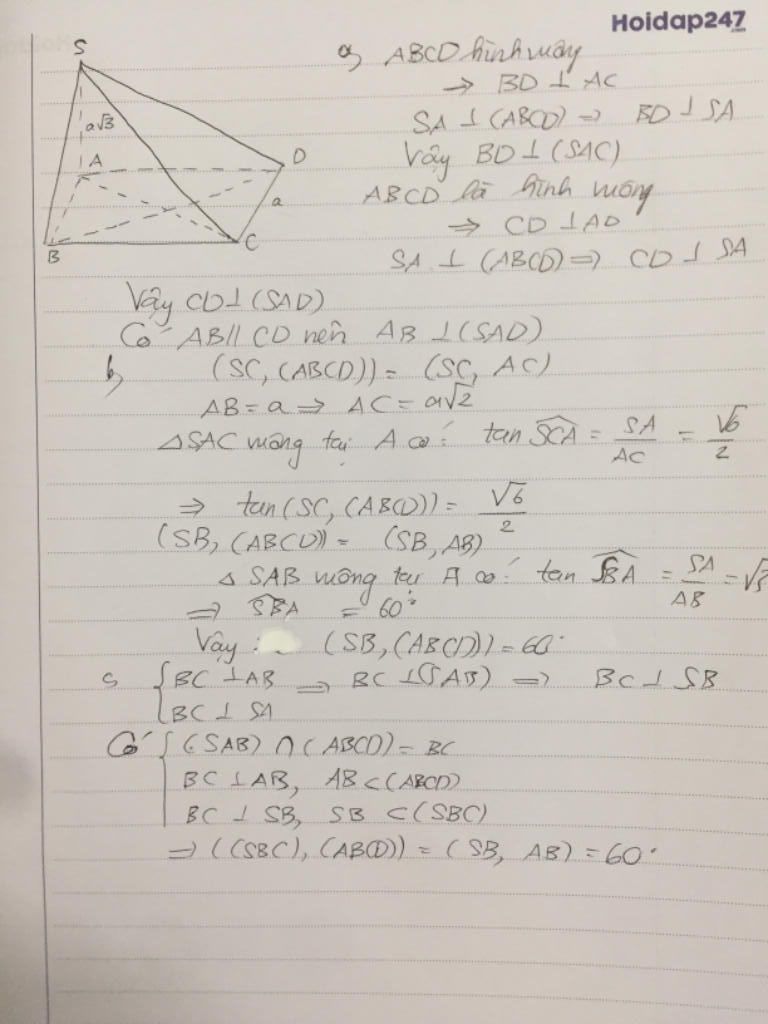 Hoidap247
.com
S
a√3
A
D
a
B
C
a, ABCD hình vuông
→ BD ⊥ AC
SA ⊥ (ABCD) ⇒ BD ⊥ SA
Vậy BD ⊥ (SAC)
ABCD là hình vuông
⇒ CD ⊥ AD
SA ⊥ (ABCD) ⇒ CD ⊥ SA
Vậy CD ⊥ (SAD)
Có AB // CD nên AB ⊥ (SAD)
b, (SC, (ABCD)) = (SC, AC)
AB = a ⇒ AC = a√2
△SAC vuông tại A có: tan SCA = SA/AC = √6/2
⇒ tan(SC, (ABCD)) = √6/2
(SB, (ABCD)) = (SB, AB)
△ SAB vuông tại A có: tan SBA = SA/AB = √3
⇒ SBA = 60°
Vậy : (SB, (ABCD)) = 60°
c, { BC ⊥ AB ⇒ BC ⊥ (SAB) ⇒ BC ⊥ SB
BC ⊥ SA
Có { (SAB) ∩ (ABCD) = BC
BC ⊥ AB, AB ⊂ (ABCD)
BC ⊥ SB, SB ⊂ (SBC)
⇒ ((SBC), (ABCD)) = (SB, AB) = 60°